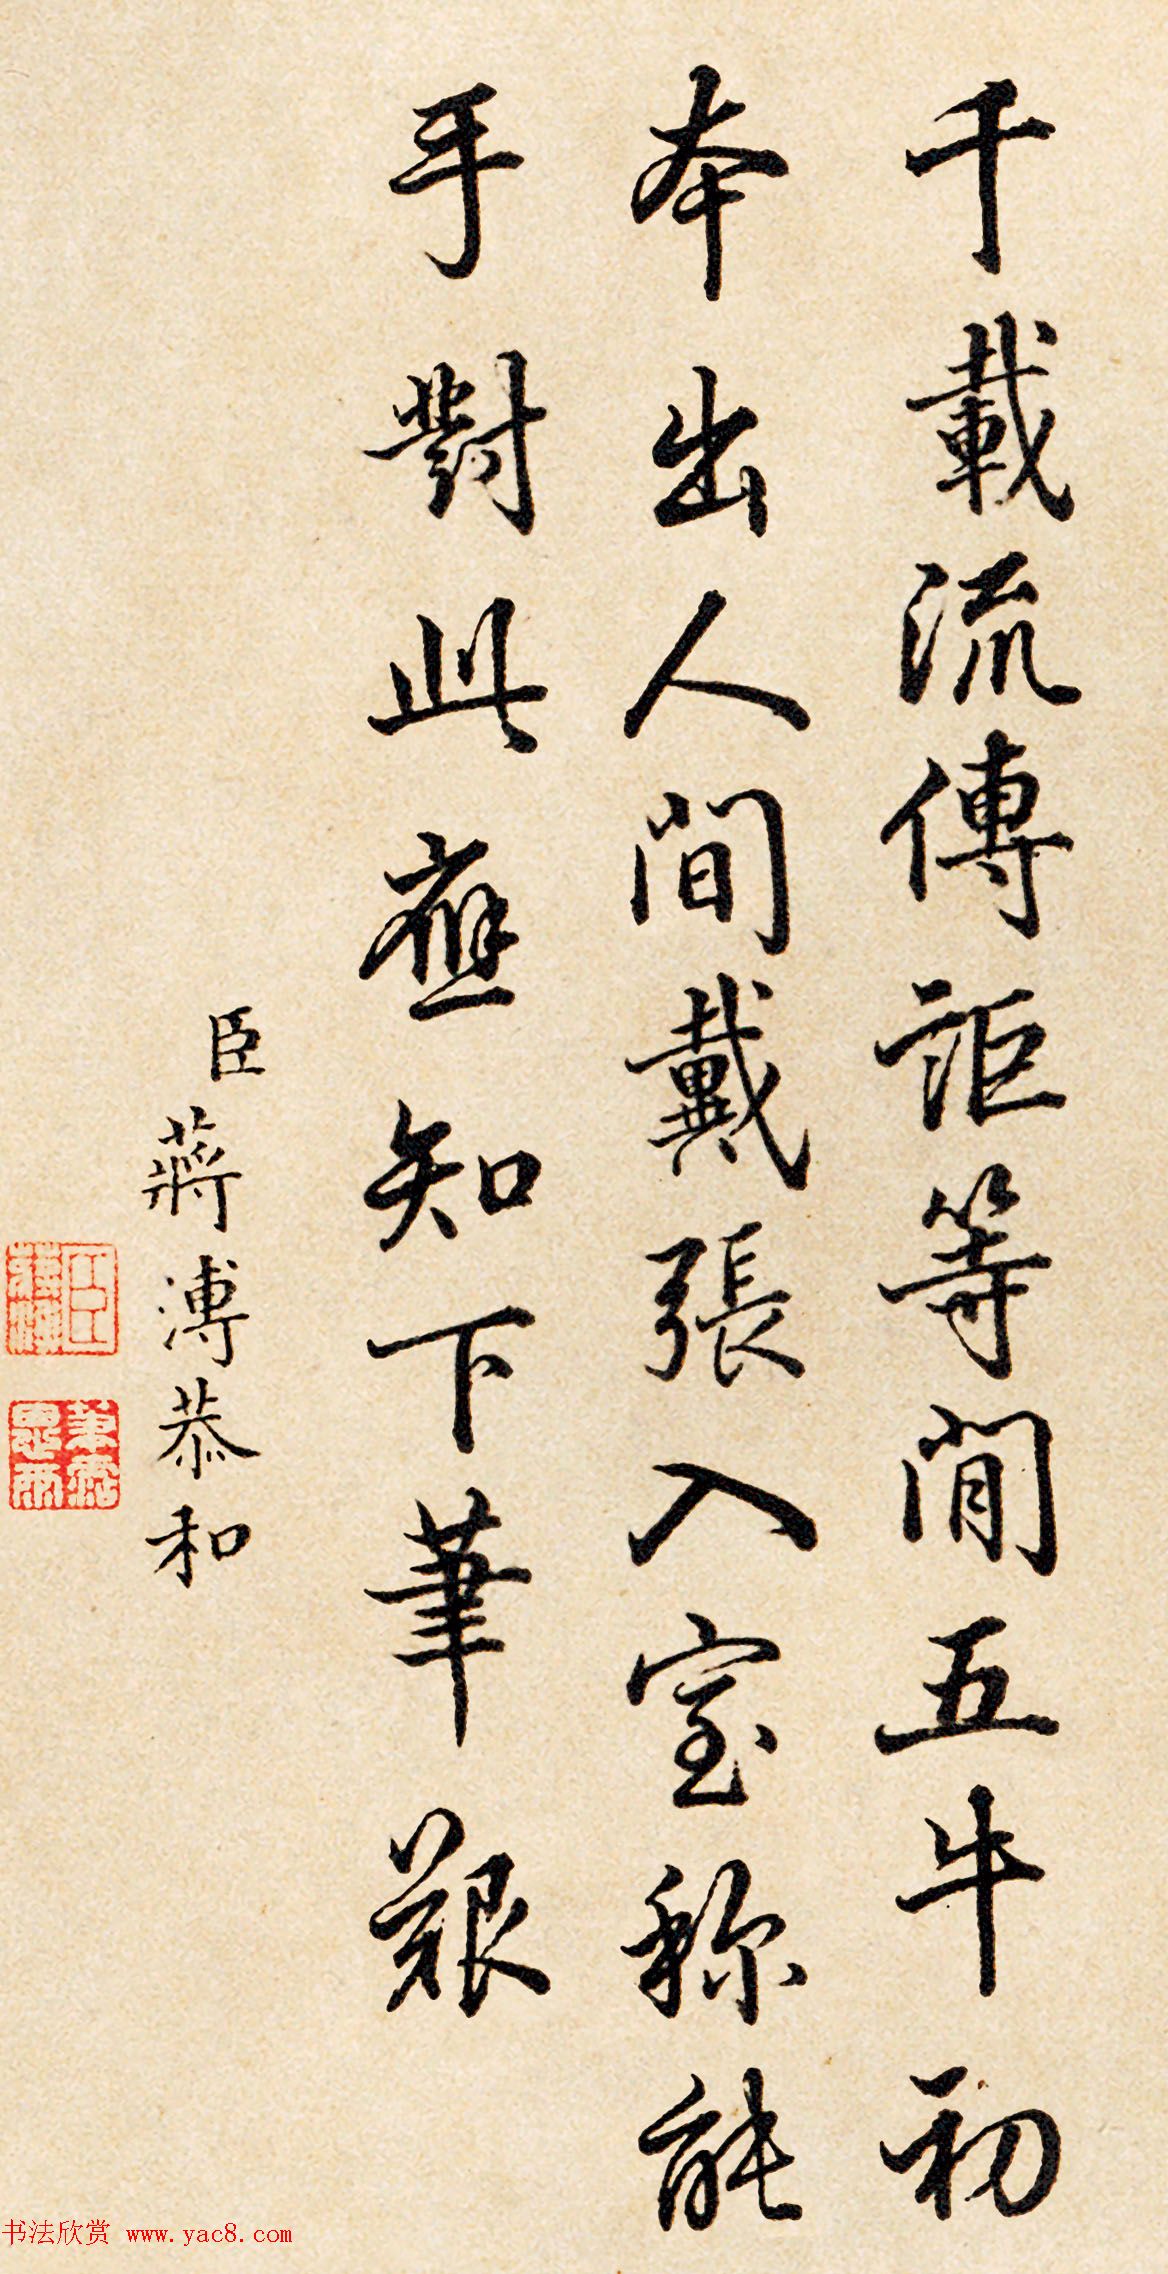 千載流傳詎等閒五牛初
本出人間戴張入室稱能
手對此應知下筆艱
臣蔣溥恭和
臣蔣溥
筆霑恩雨
书法欣赏 www.yac8.com